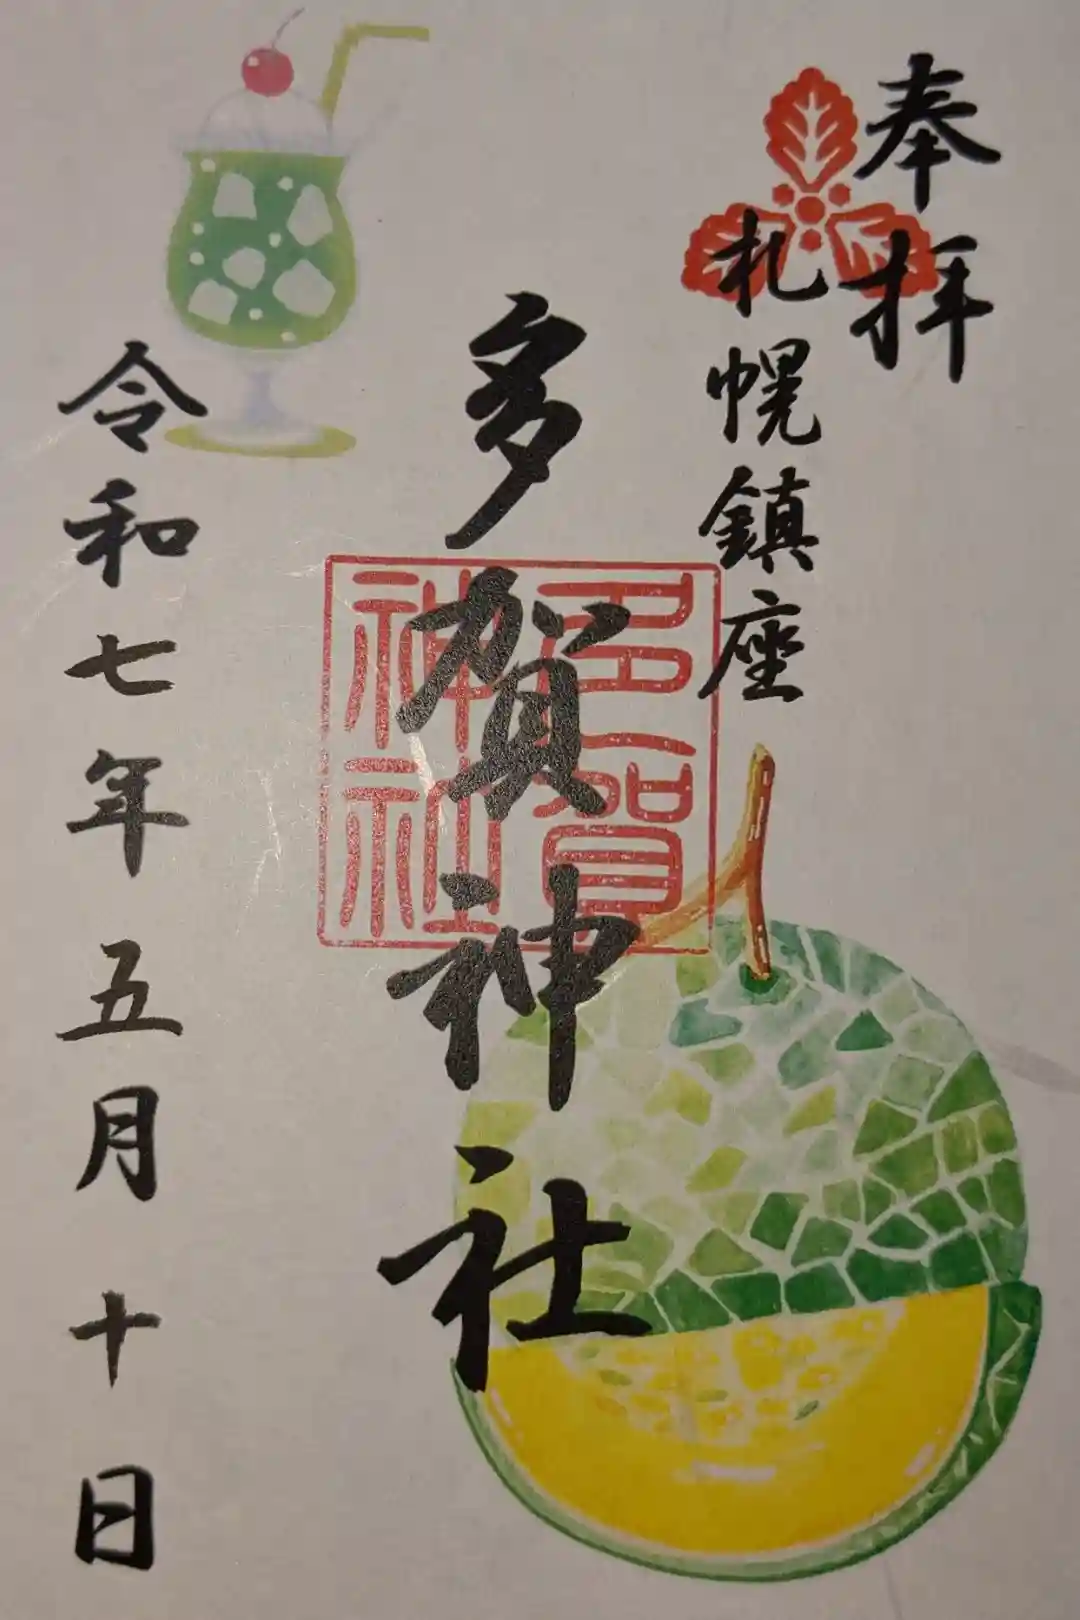 奉拝
札幌鎮座
多賀神社
多賀
神社
令和七年五月十日